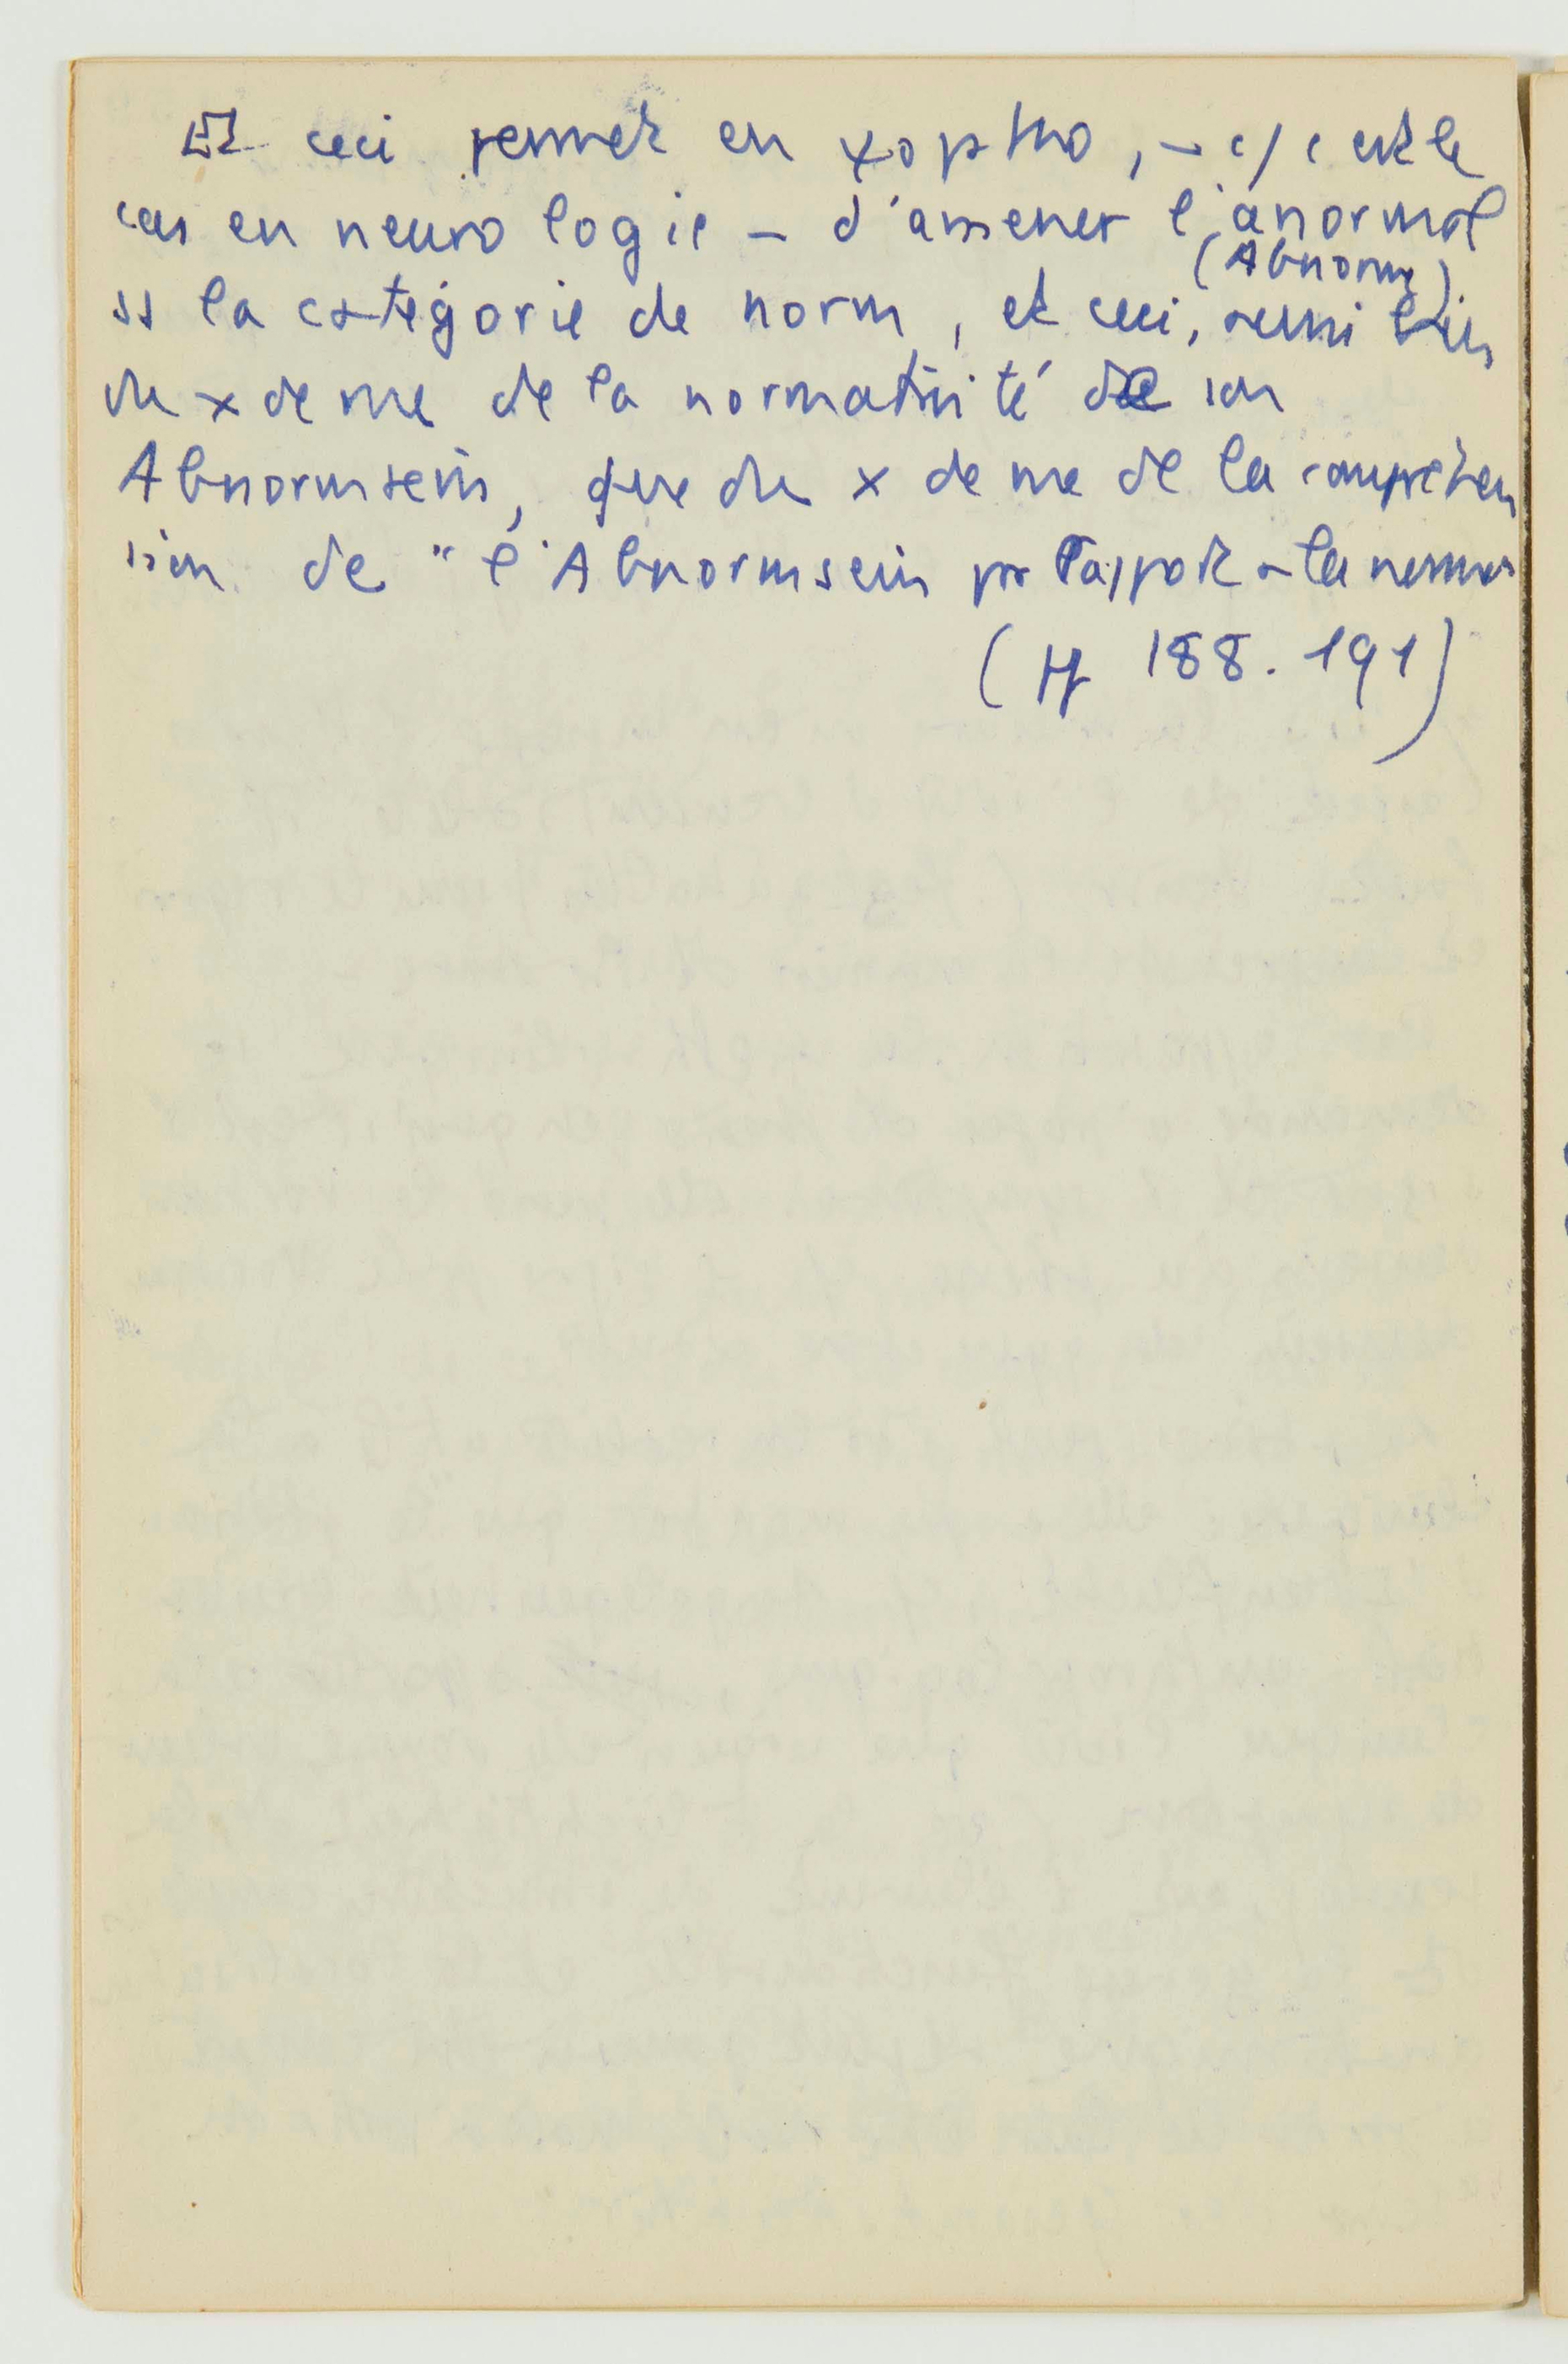 Et ceci permet en ψopatho, – c/ c'est le
cas en neurologie – d'amener l'anormal
(Abnorme)
ss la catégorie de norm, et ceci, aussi bien
du x de vue de la normativité de son
Abnormsein, que du x de vue de la compréhen
sion de "l'Abnormsein par rapport à la norme
(pp 188. 191)